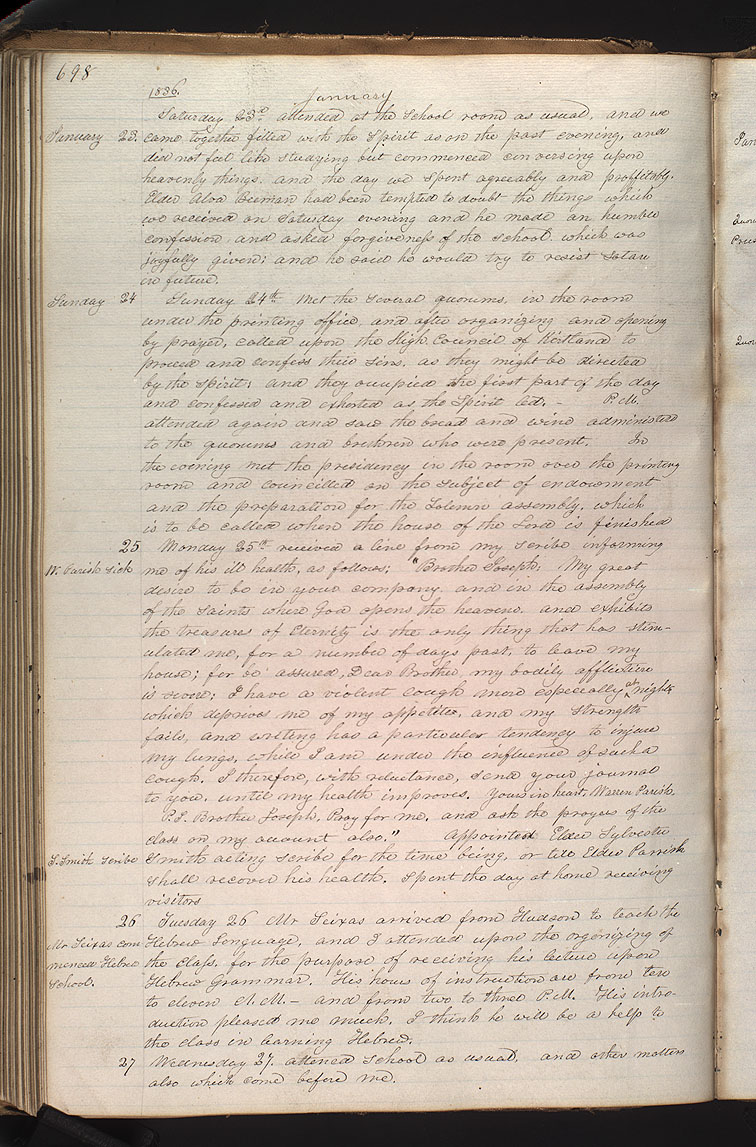 698
1836.
January
Saturday 23d. attended at the School room as usual, and we
January 23. came together filled with the Spirit as on the past evening, and
did not feel like studying but commenced conversing upon
heavenly things, and the day we spent agreeably and profitably.
Elder Alva Beeman had been tempted to doubt the things which
we received on Saturday evening and he made an humble
confession, and asked forgiveness of the school which was
joyfully given; and he said he would try to resist Satan
in future.
Sunday 24 Sunday 24th. Met the several quorums, in the room
under the printing office, and after organizing and opening
by prayer, called upon the High Council of Kirtland to
proceed and confess their sins, as they might be directed
by the Spirit; and they occupied the first part of the day
and confessed and exhorted as the Spirit led. - P.M.
attended again and saw the bread and wine administered
to the quorums and brethren who were present. In
the evening met the presidency in the room over the printing
room and councilled on the subject of endowment
and the preparation for the Solemn assembly, which
is to be called when the house of the Lord is finished
25 Monday 25th received a line from my scribe informing
W. Parish sick me of his ill health, as follows; "Brother Joseph, My great
desire to be in your company, and in the assembly
of the Saints where God opens the heavens, and exhibits
the treasures of Eternity is the only thing that has stim-
ulated me, for a number of days past, to leave my
house; for be assured, Dear Brother, my bodily affliction
is severe; I have a violent cough more especially at nights
which deprives me of my appetite, and my strength
fails, and writing has a particular tendency to injure
my lungs, while I am under the influence of such a
cough. I therefore, with reluctance, send your journal
to you, until my health improves. Yours in heart, Warren Parish.
P.S. Brother Joseph, Pray for me, and ask the prayers of the
class on my account also." Appointed Elder Sylvester
S. Smith Scribe Smith acting scribe for the time being, or till Elder Parrish
shall recover his health. Spent the day at home receiving
visitors
26 Tuesday 26 Mr Seixas arrived from Hudson to teach the
Mr Seixas com Hebrew Language, and I attended upon the organizing of
menced Hebrew the class, for the purpose of receiving his lecture upon
School. Hebrew grammar. His hours of instruction are from ten
to eleven A.M. - and from two to three P.M. His intro-
duction pleased me much. I think he will be a help to
the class in learning Hebrew.
27 Wednesday 27. attened School as usual, and other matters
also which come before me.